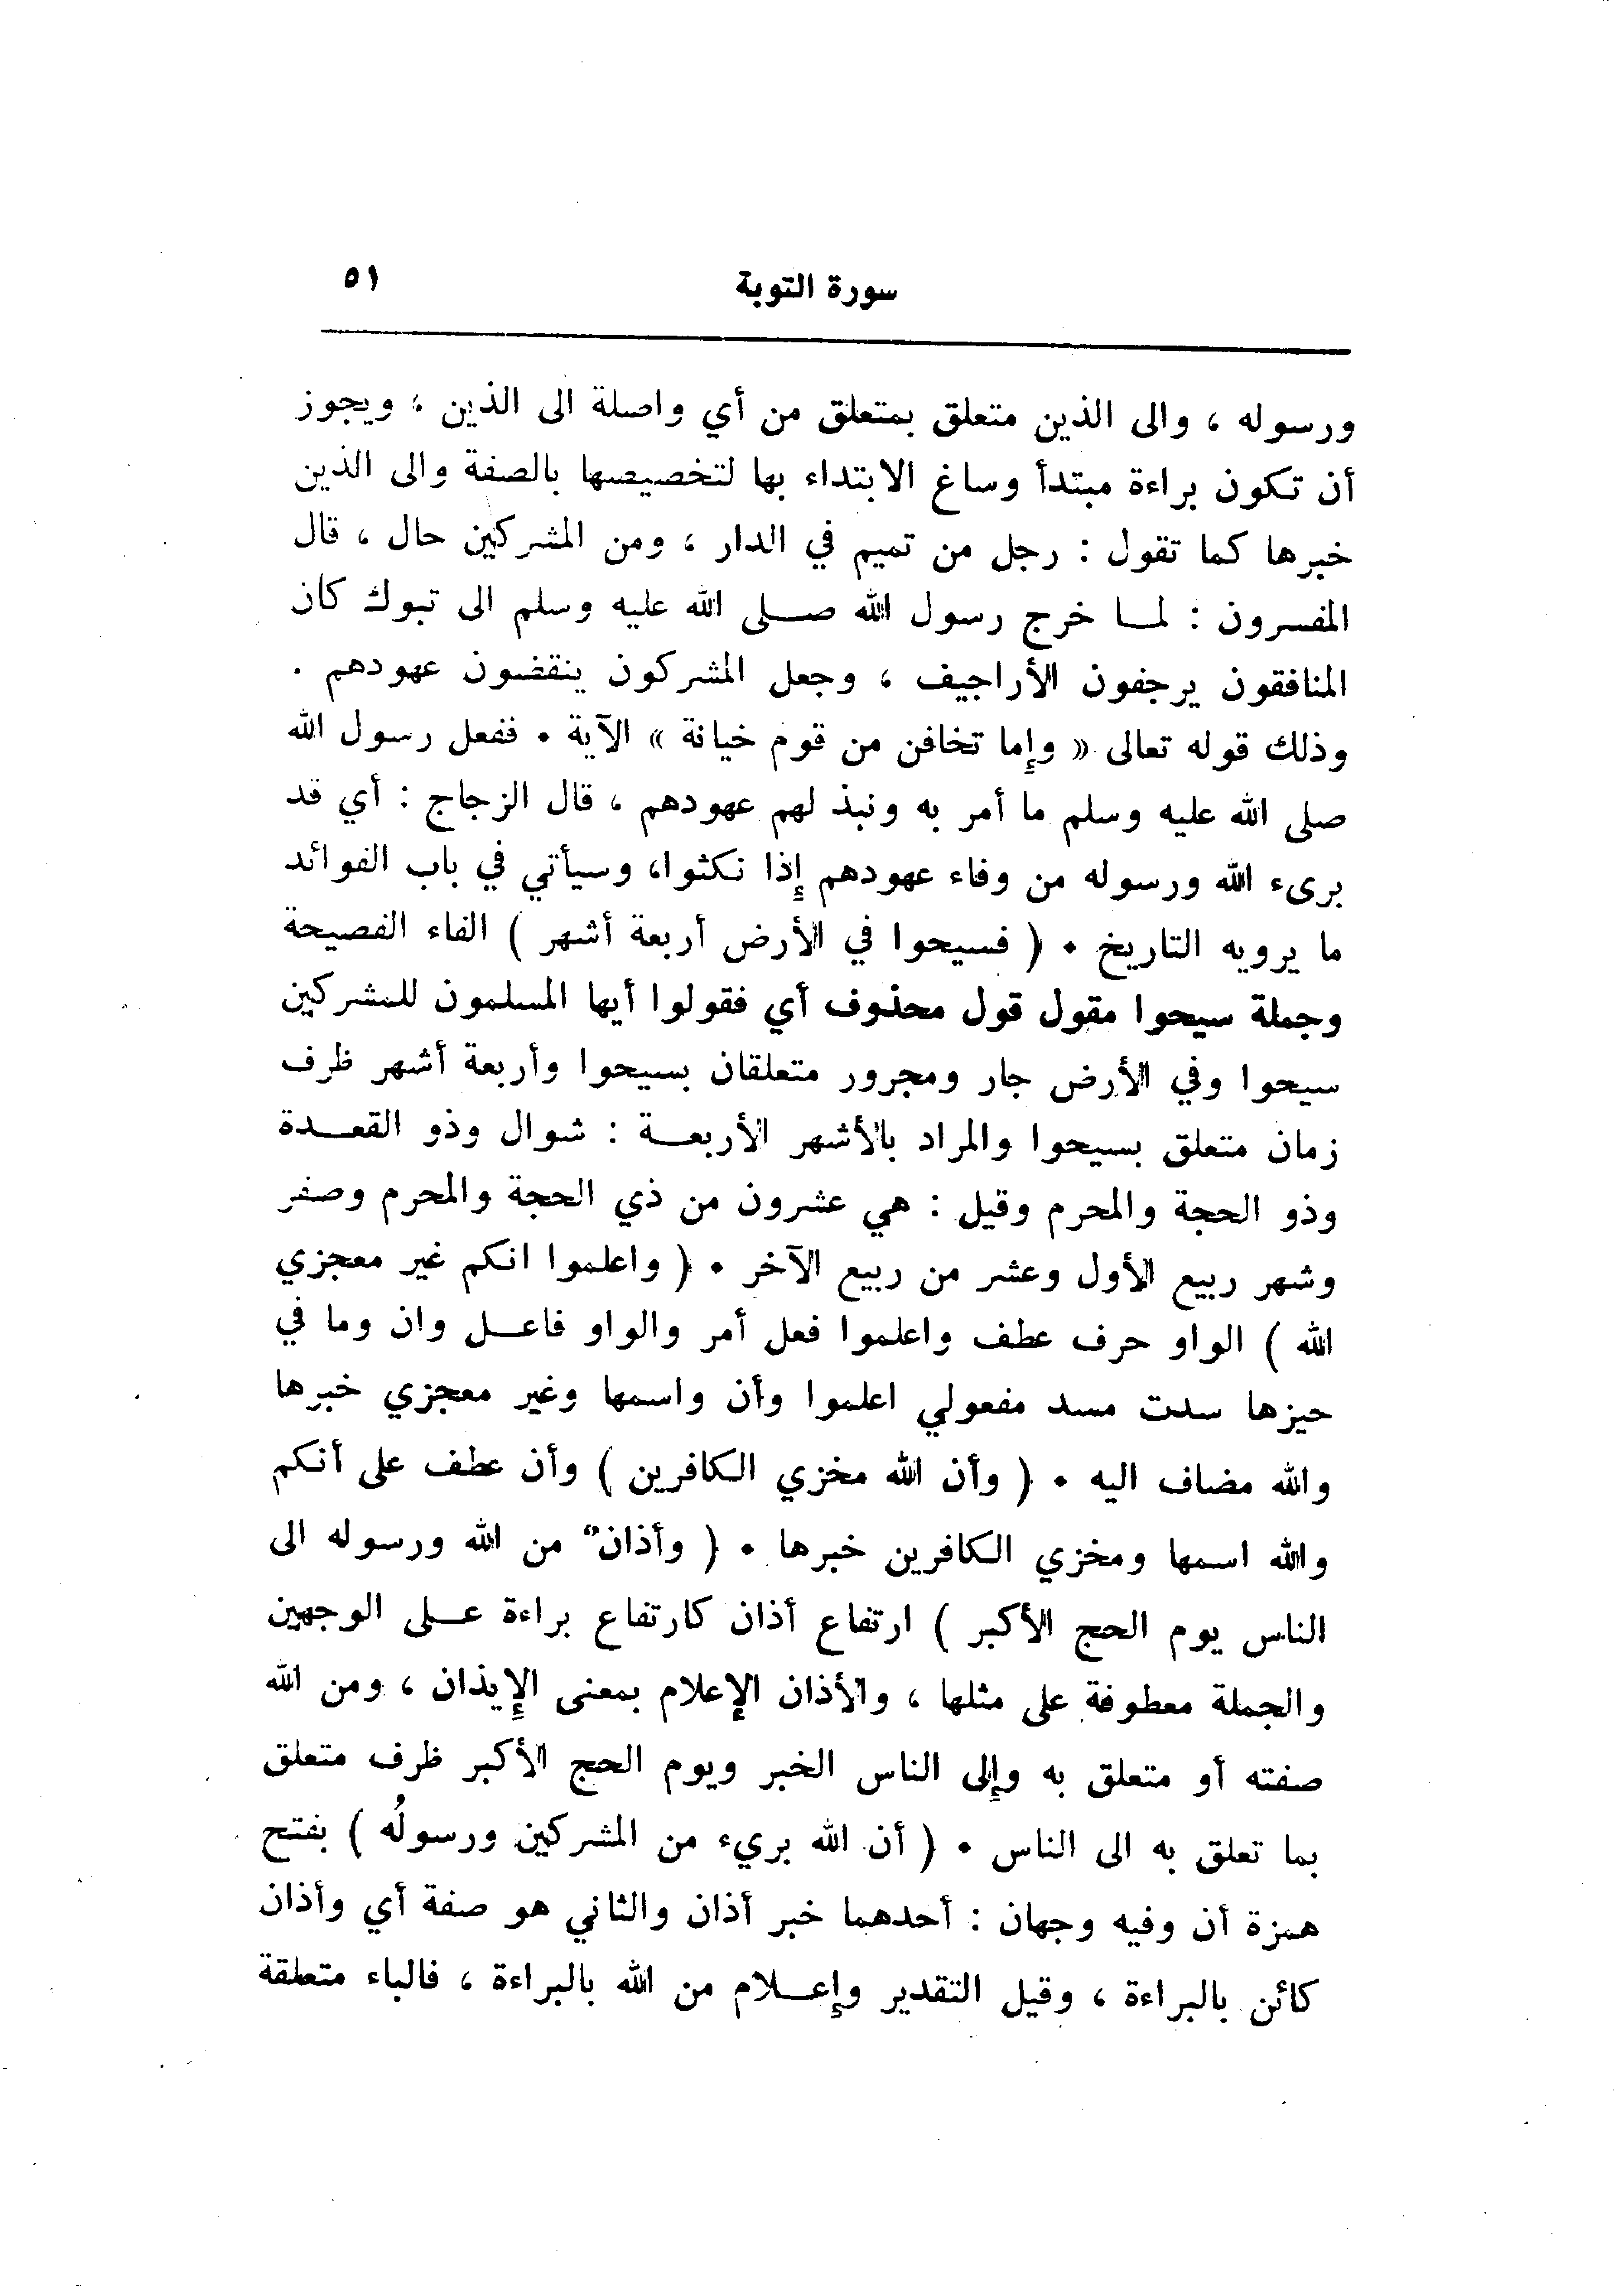 سورة التوبة ٥١
ورسوله ، والى الذين متعلق بمتعلق من أي واصلة الى الذين ، ويجوز
أن تكون براءة مبتدأ وساغ الابتداء بها لتخصيصها بالصفة والى الذين
خبرها كما تقول : رجل من تميم في الدار ، ومن المشركين حال ، قال
المفسرون : لمـا خرج رسول الله صـلى الله عليه وسلم الى تبوك كان
المنافقون يرجفون الأراجيف ، وجعل المشركون ينقضون عهودهم .
وذلك قوله تعالى « وإما تخافن من قوم خيانة » الآية . ففعل رسول الله
صلى الله عليه وسلم ما أمر به ونبذ لهم عهودهم ، قال الزجاج : أي قد
برىء الله ورسوله من وفاء عهودهم إذا نكثوا، وسيأتي في باب الفوائد
ما يرويه التاريخ . ( فسيحوا في الأرض أربعة أشهر ) الفاء الفصيحة
وجملة سيحوا مقول قول محذوف أي فقولوا أيها المسلمون للمشركين
سيحوا وفي الأرض جار ومجرور متعلقان بسيحوا وأربعة أشهر ظرف
زمان متعلق بسيحوا والمراد بالأشهر الأربعـة : شوال وذو القعـدة
وذو الحجة والمحرم وقيل : هي عشرون من ذي الحجة والمحرم وصفر
وشهر ربيع الأول وعشر من ربيع الآخر . ( واعلموا انكم غير معجزي
الله ) الواو حرف عطف واعلموا فعل أمر والواو فاعـل وان وما في
حيزها سدت مسد مفعولي اعلموا وأن واسمها وغير معجزي خبرها
والله مضاف اليه . ( وأن الله مخزي الكافرين ) وأن عطف على أنكم
والله اسمها ومخزي الكافرين خبرها . ( وأذانٌ من الله ورسوله الى
الناس يوم الحج الأكبر ) ارتفاع أذان كارتفاع براءة عـلى الوجهين
والجملة معطوفة على مثلها ، والأذان الإعلام بمعنى الإيذان ، ومن الله
صفته أو متعلق به وإلى الناس الخبر ويوم الحج الأكبر ظرف متعلق
بما تعلق به الى الناس . ( أن الله بريء من المشركين ورسولُه ) بفتح
همزة أن وفيه وجهان : أحدهما خبر أذان والثاني هو صفة أي وأذان
كائن بالبراءة ، وقيل التقدير وإعـلام من الله بالبراءة ، فالباء متعلقة